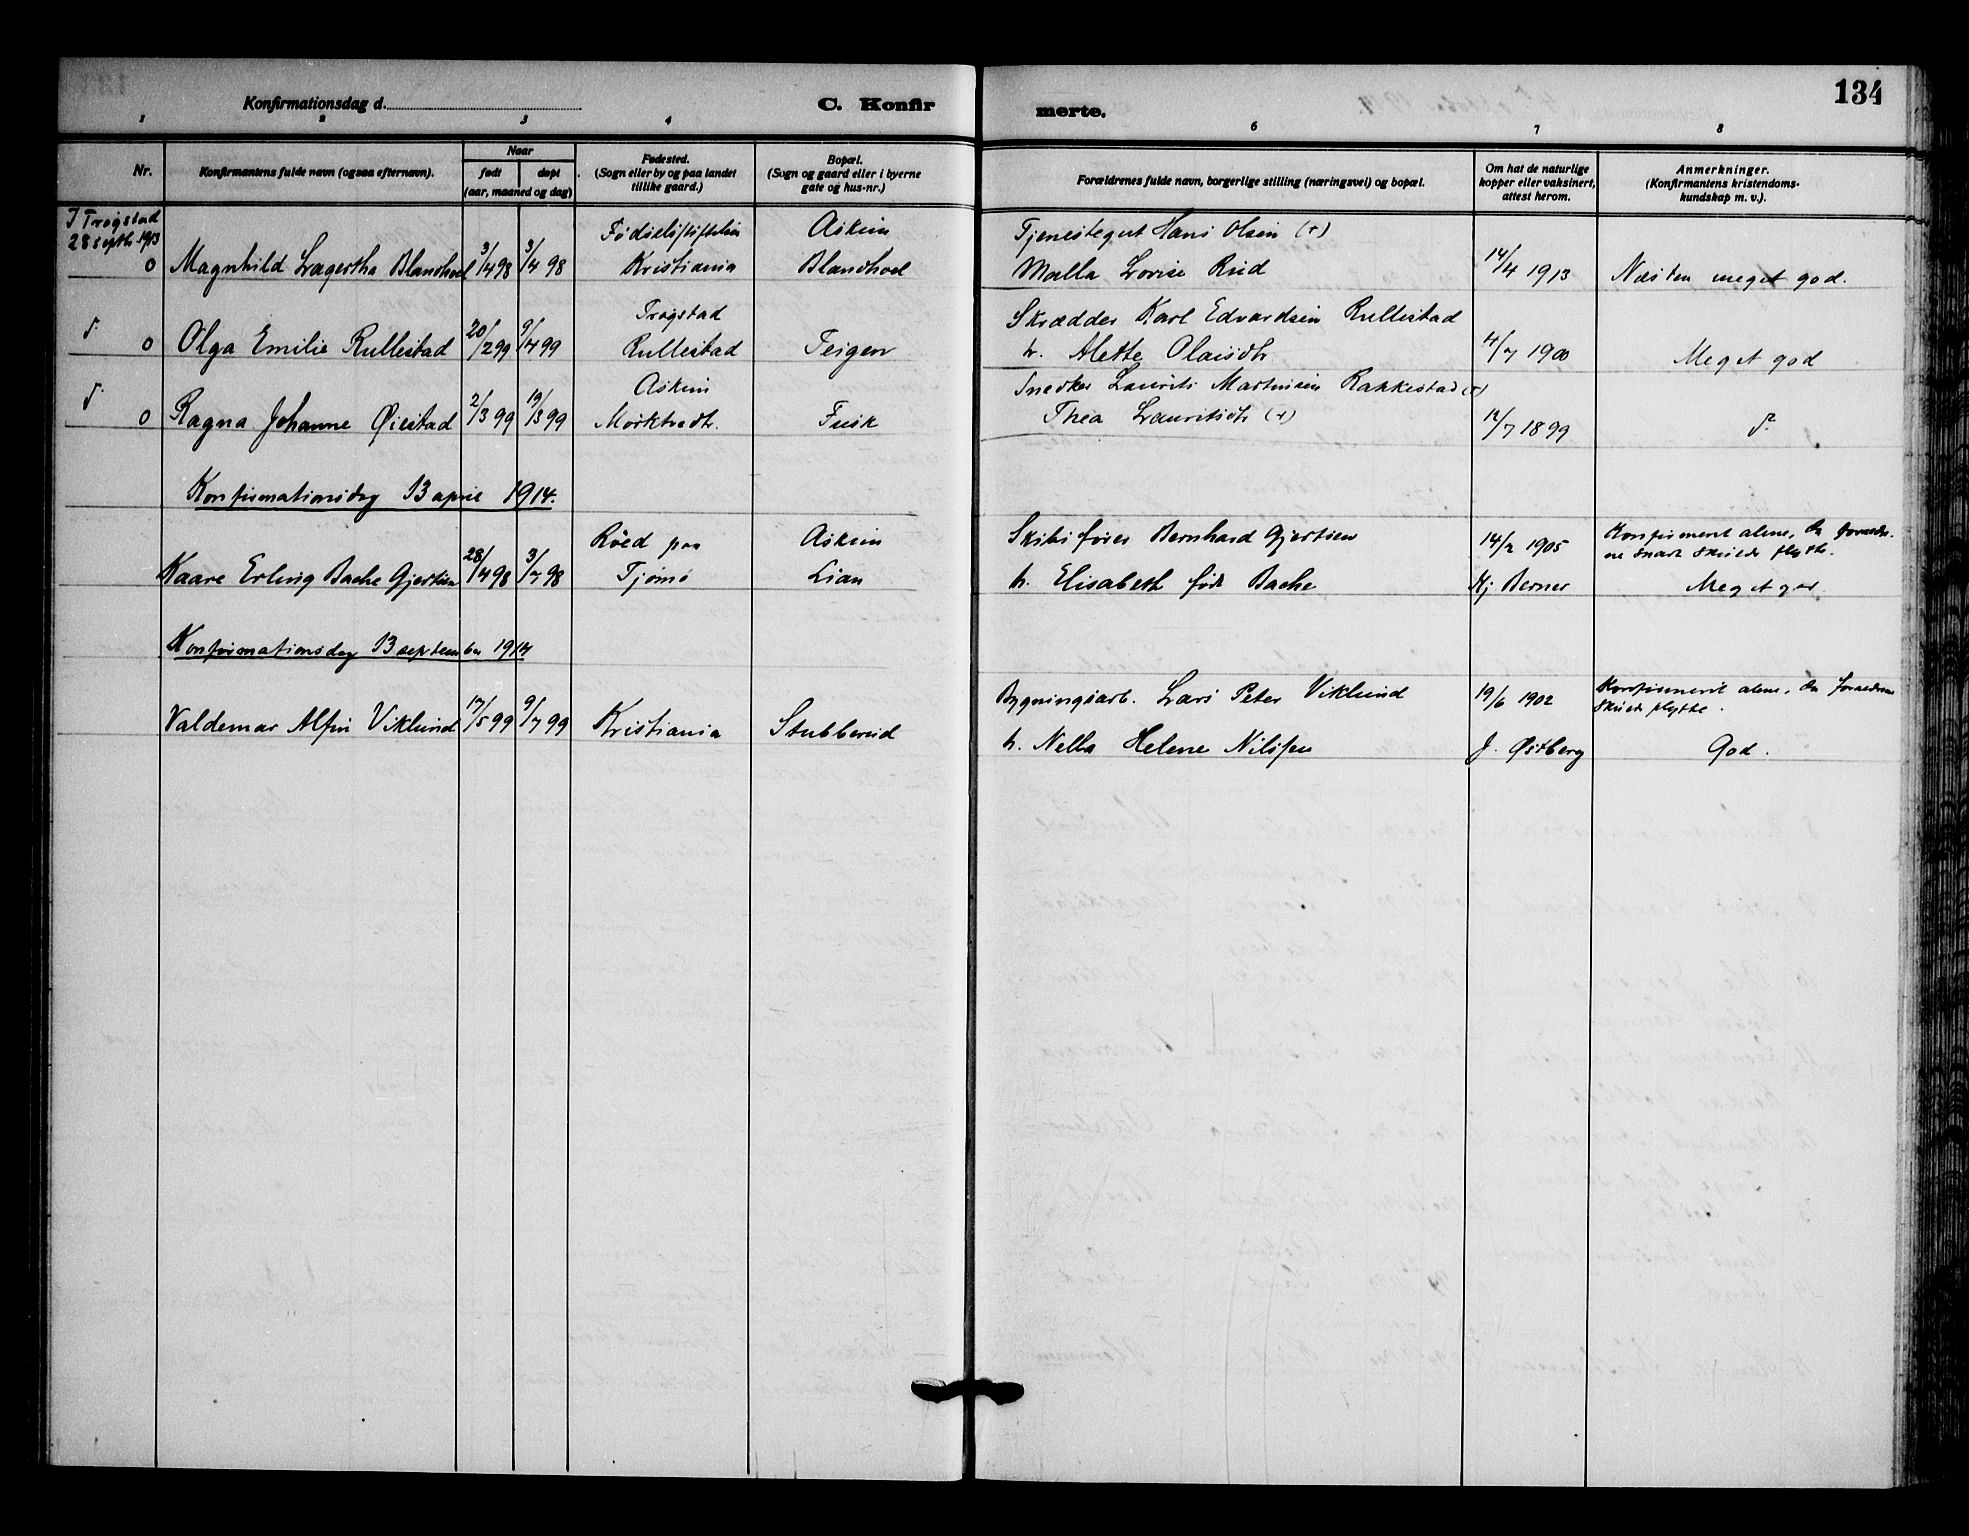 134
Konfirmationsdag d.
C. Konfir
merte.
1 2 3 4 6 7 8
Nr.
Konfirmantens fulde navn (ogsaa efternavn).
Naar
født døpt
(aar, maaned og dag)
Fødested.
(Sogn eller by og paa landet
tillike gaard.)
Bopæl.
(Sogn og gaard eller i byerne
gate og hus-nr.)
Forældrenes fulde navn, borgerlige stilling (næringsvei) og bopæl.
Om hat de naturlige
kopper eller vaksinert,
attest herom.
Anmerkninger.
(Konfirmantens kristendoms-
kundskap m. v.).
I Trøgstad Fødselsstiftelsen Askim Tjenestegut Hans Olsen (+)
28 septbr. 1913
0 Magnhild Lagertha Blandhoel 3/4 98 3/4 98 Kristiania Blandhoel Malla Lovise Rud 14/4 1913 Næsten meget god.
d. Trøgstad Skrædder Karl Edvardsen Rullestad
0 Olga Emilie Rullestad 20/2 99 9/4 99 Rullestad Teigen h. Alette Olaisdtr 4/7 1900 Meget god
d. Askim Snedker Laurits Martinsen Rakkestad (+)
0 Ragna Johanne Øiestad 2/3 99 19/3 99 Mørktvedtr. Fusk Thea Lauritsdtr (+) 12/7 1899 do
Konfirmationsdag 13 april 1914.
Røed paa Askim Skibsfører Bernhard Gjertsen 14/2 1905 Konfirmert alene, da forældre-
ne snart skulde flytte.
Kaare Erling Bache Gjertsen 28/4 98 3/7 98 Tjømø Lian h. Elisabeth født Bache Hj Berner Meget god
Konfirmationsdag 13 september 1914
Bygningsarb. Lars Peter Viklund 19/6 1902 Konfirmert alene, da forældrene
skulde flytte.
Valdemar Alfin Viklund 17/5 99 9/7 99 Kristiania Stubberud h. Nella Helene Nilssen J. Østberg God.